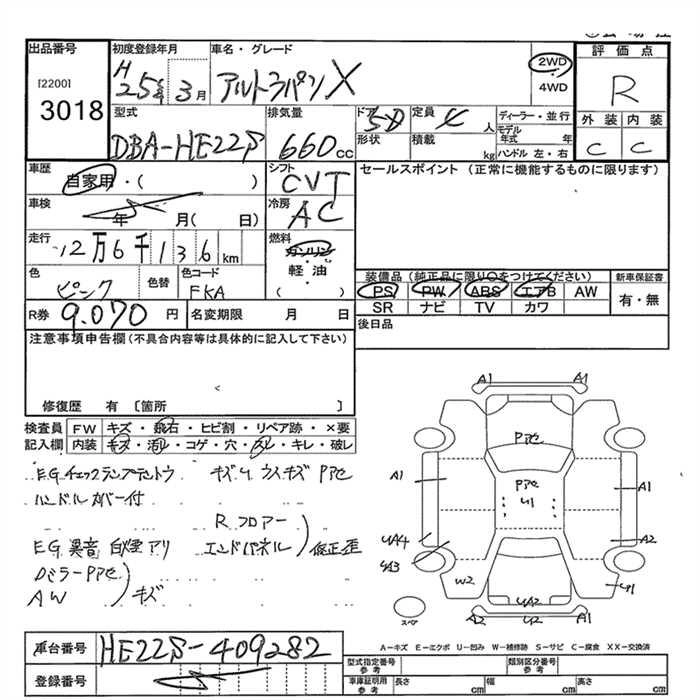 出品番号
[2200]
3018
初度登録年月
H 25年 3月
車名・グレード
アルトラパン X
2WD
4WD
評価点
R
外装 内装
C C
型式
DBA-HE22S
排気量
660 cc
ドア 5D
形状
定員 4 人
積載 kg
ディーラー・並行
モデル年式 年
ハンドル 左・右
車歴
自家用・( )
シフト
CVT
セールスポイント (正常に機能するものに限ります)
車検
年 月( 日)
冷房
AC
走行
12万6千136 km
燃料
ガソリン
軽・油
( )
色
ピンク
色替
色コード
FKA
装備品 (純正品に限り○をつけてください)
PS PW ABS エアB AW
SR ナビ TV カワ
新車保証書
有・無
R券
9,070 円
名変期限 月 日
後日品
注意事項申告欄(不具合内容等は具体的に記入して下さい)
修復歴 有 〔箇所 〕
検査員記入欄
FW キズ・飛石・ヒビ割・リペア跡・×要
内装 キズ・汚レ・コゲ・穴・スレ・キレ・破レ
E,G,チェックランプテントウ
ハンドルカバー付
E,G,異音 白煙アリ
Dミラー Pアセ
AW
キズ
キズ、U、ウスキズ Pアセ
Rフロアー
エンドパネル
修正歪
A1 A1
Pアセ
Pアセ
U1
A1 A1
UA4 A2
UA3
W2 U1
UA2
A2 U2 A1
スペア
A-キズ E-エクボ U-凹み W-補修跡 S-サビ C-腐食 XX-交換済
車台番号
HE22S-409282
登録番号
型式指定番号 参考
類別区分番号 参考
車庫証明用 参考
長さ cm
幅 cm
高さ cm